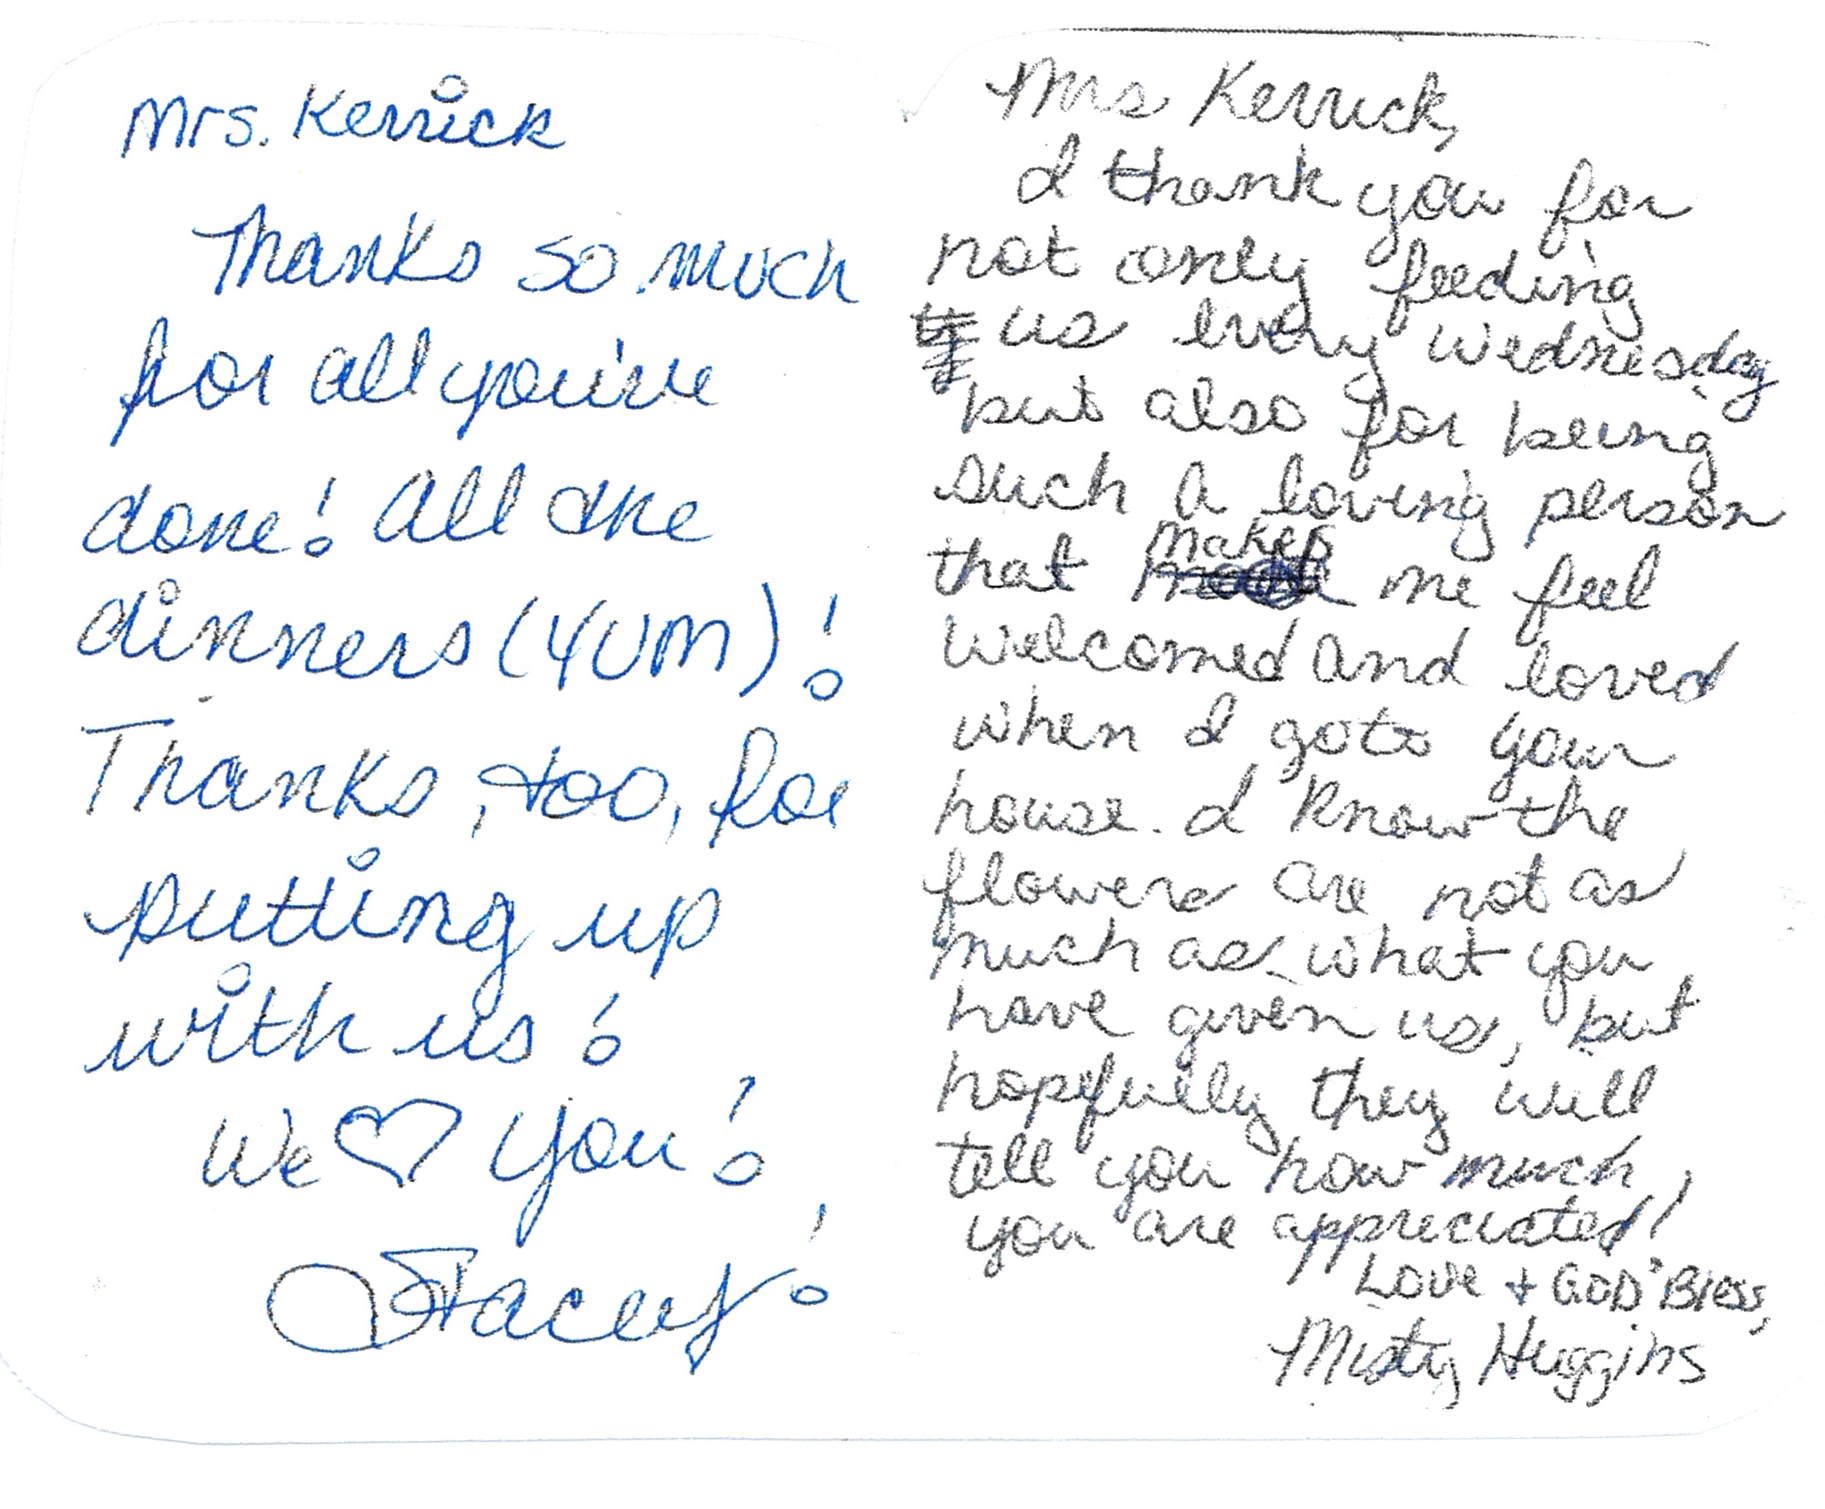 Mrs. Kerrick
Thanks so much
for all you've
done! All the
dinners (YUM)!
Thanks, too, for
putting up
with us!
We ♡ you!
Stacey!
Mrs Kerrick,
I thank you for
not only feeding
us every Wednesday
but also for being
such a loving person
that makes me feel
welcomed and loved
when I go to your
house. I know the
flowers are not as
much as what you
have given us, but
hopefully they will
tell you how much
you are appreciated!
Love + GOD Bless,
Misty Huggins